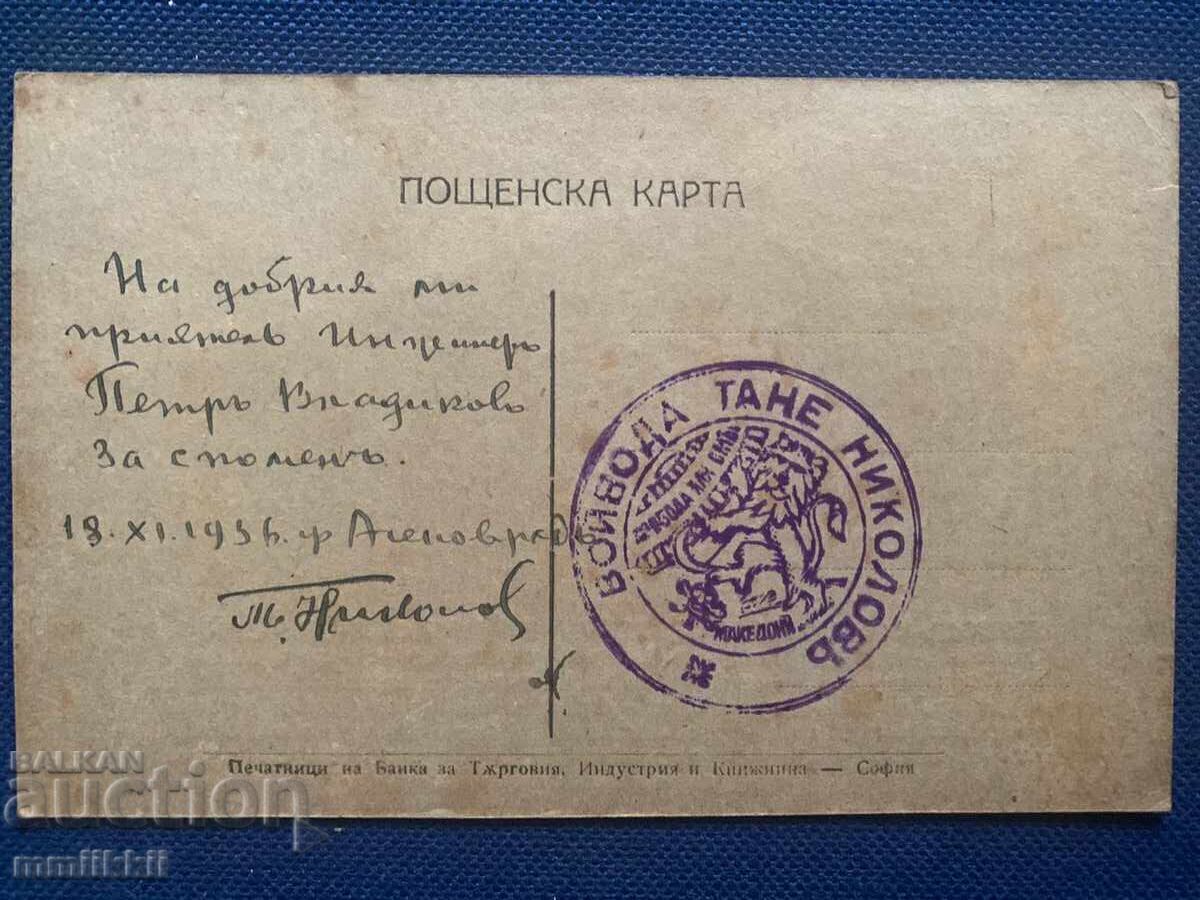 ПОЩЕНСКА КАРТА
На добрия ми
приятель Инженеръ
Петръ Владиковъ
За споменъ.
18.XI.1936. гр Асеновградъ
Т. Николов
ВОЙВОДА ТАНЕ НИКОЛОВЪ
МАКЕДОНИ
Печатници на Банка за Тѫрговия, Индустрия и Книжнина — София
BALKAN
auction
mmiikkii